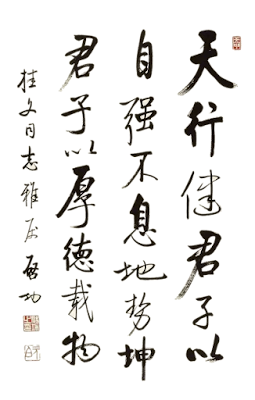 天行健君子以
自强不息地势坤
君子以厚德载物
桂文同志雅属 启功